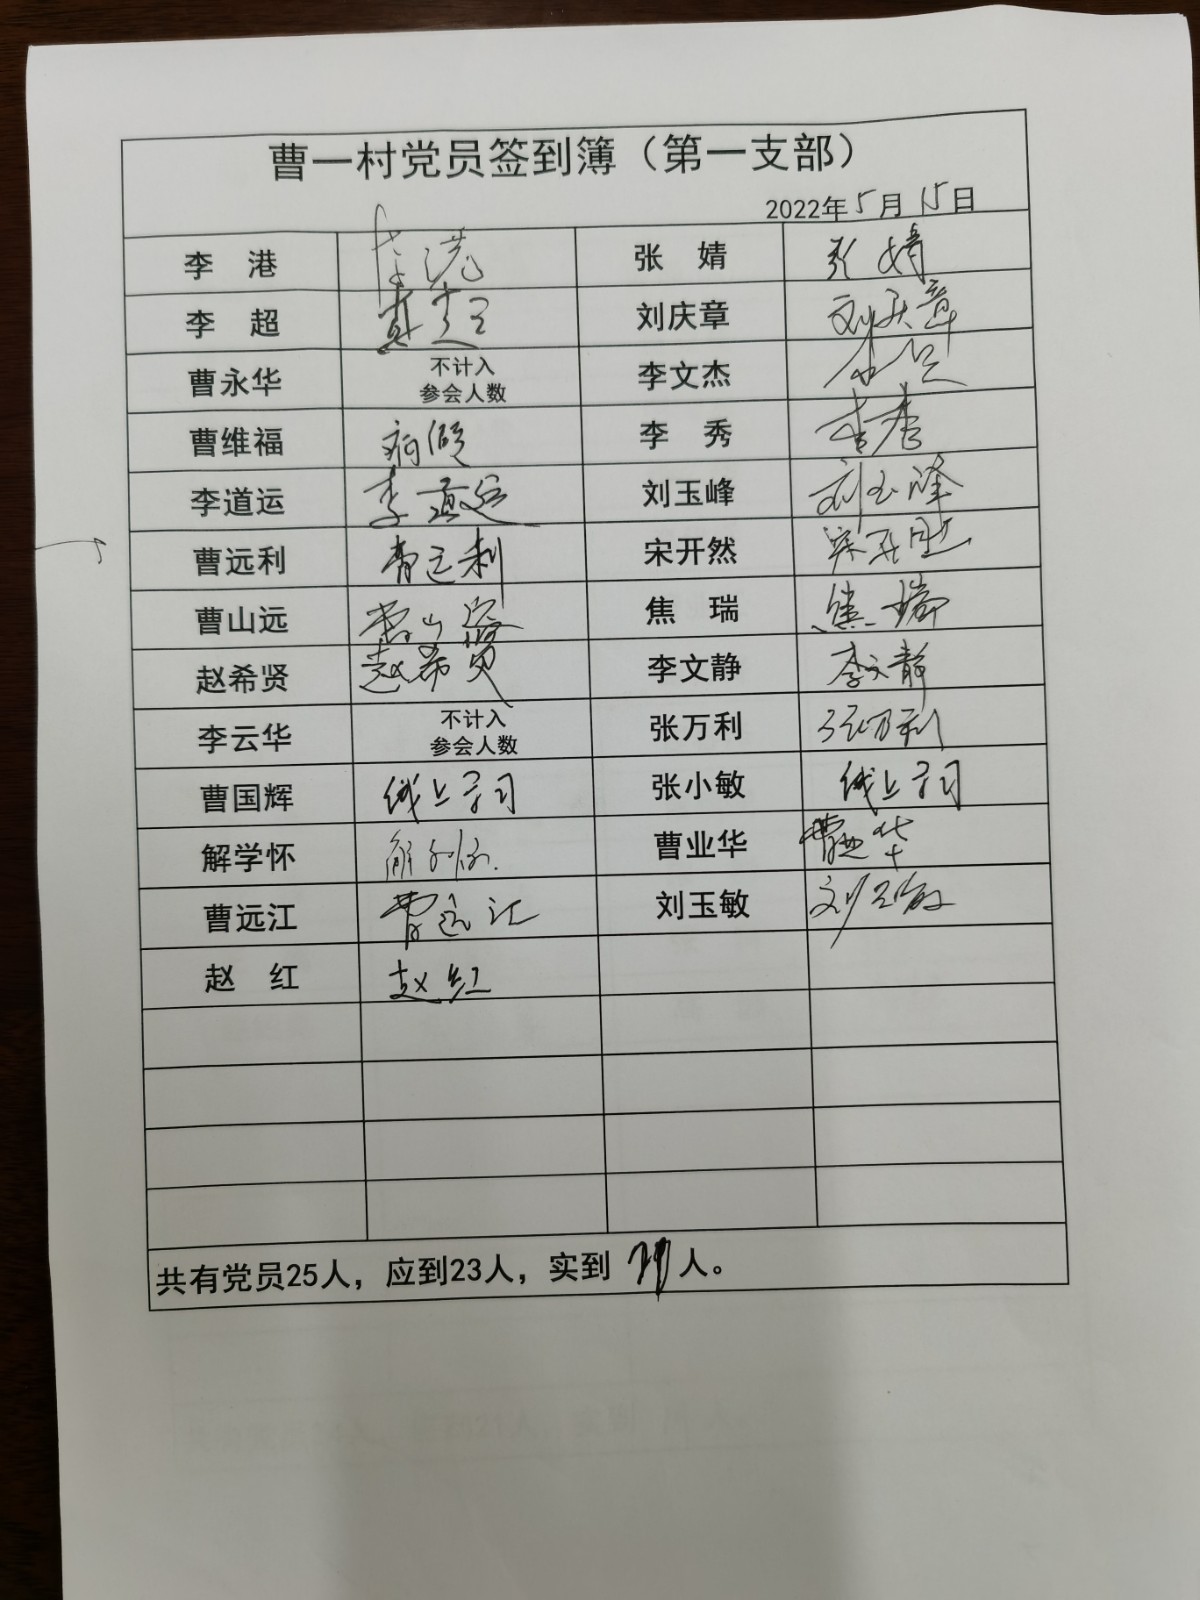 曹一村党员签到簿（第一支部）
2022年5月15日
李 港 李港 张 婧 张婧
李 超 李超 刘庆章 刘庆章
曹永华 不计入 参会人数 李文杰
曹维福 病假 李 秀 李秀
李道运 李道运 刘玉峰 刘玉峰
曹远利 曹远利 宋开然 宋开然
曹山远 曹山远 焦 瑞 焦瑞
赵希贤 赵希贤 李文静 李文静
李云华 不计入 参会人数 张万利 张万利
曹国辉 线上学习 张小敏 线上学习
解学怀 解学怀 曹业华 曹业华
曹远江 曹远江 刘玉敏 刘玉敏
赵 红 赵红
共有党员25人，应到23人，实到 人。